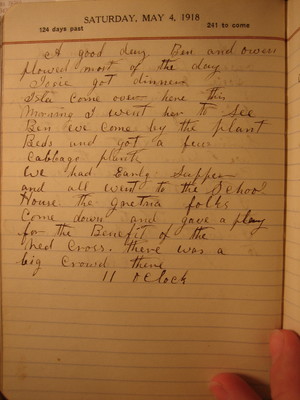 SATURDAY, MAY 4, 1918
124 days past 241 to come
A good day. Ben and owen
plowed most of the day
Josie got dinner
Isla come over here this
Morning I went her to See
Ben we come by the plant
Beds and got a few
Cabbage plants
We had Early Supper
and all went to the School
House the Gretna folks
Come down and gave a play
for the Benefit of the
Red Cross. there was a
big Crowd there
11 OClock